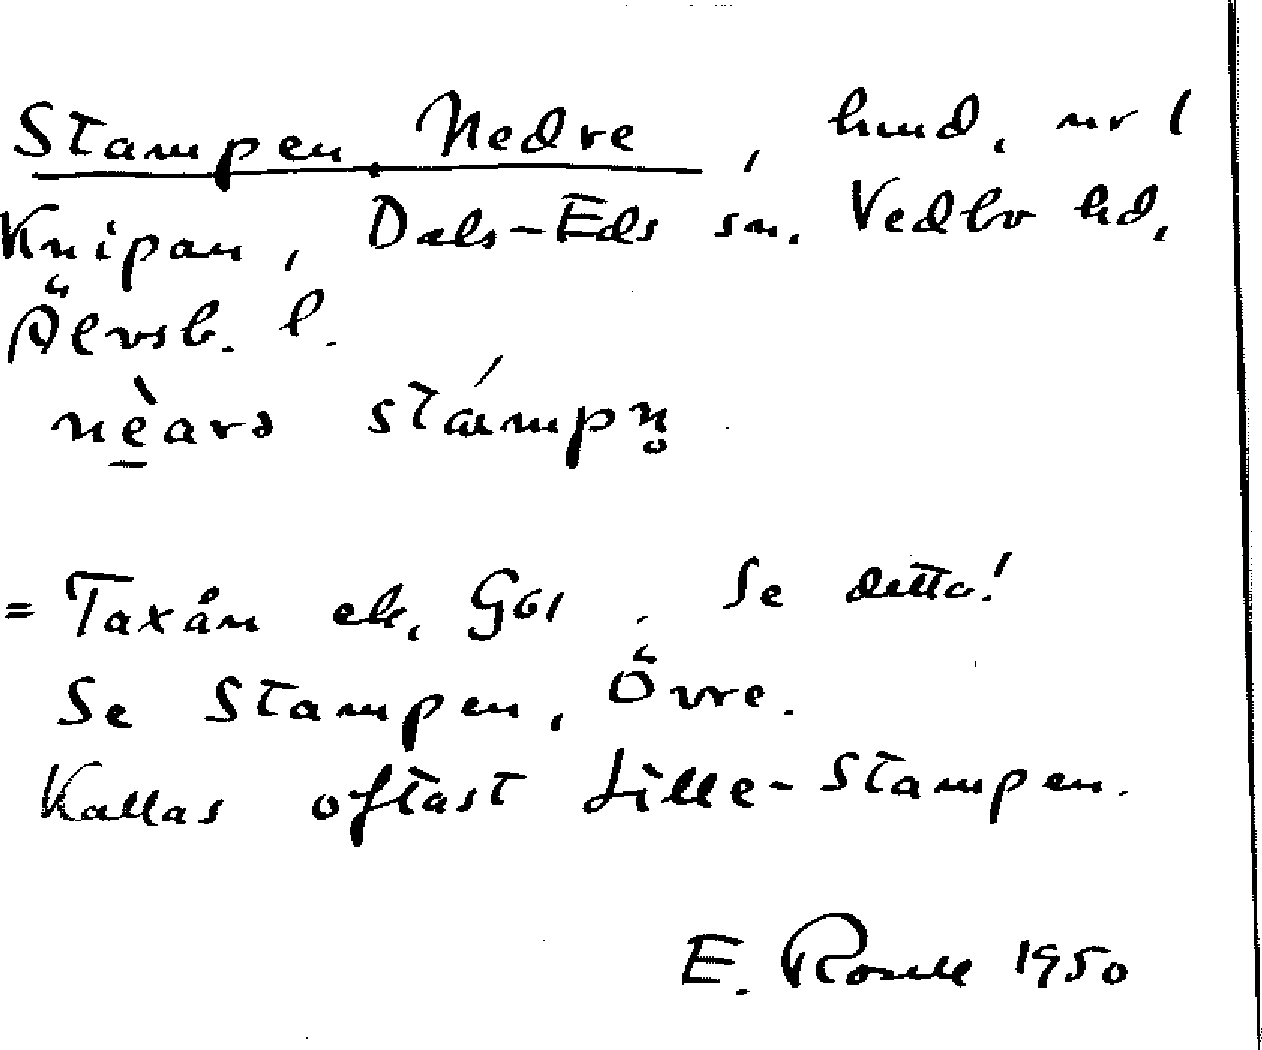 Stampen, Nedre, hmd. nr 1
Knipan, Dals-Eds sn. Vedbo hd,
Älvsb. l.
nèarə stámpn̥
= Taxån ek. Se detta!
Se Stampen, Övre.
Kallas oftast Lille-Stampen.
E. Rosell 1950